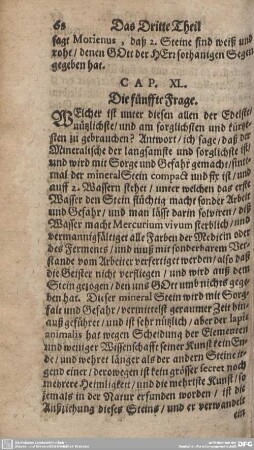 68 Das Dritte Theil
sagt Morienus, daß 2. Steine sind weiß und
roht/ denen GOtt der HErr sothanigen Segen
gegeben hat.
CAP. XL.
Die fünffte Frage.
WElcher ist unter diesen allen der Edelste/
nützlichste/ und am sorglichsten und kürtze-
sten zu gebrauchen? Antwort/ ich sage/ daß der
Mineralische der langsamste und sorglichste ist/
und wird mit Sorge und Gefahr gemacht/ sinte-
mal der mineral Stein compact und fix ist/ und
auff 2. Wassern stehet/ unter welchen das erste
Wasser den Stein flüchtig macht sonder Arbeit
und Gefahr/ und man lässt darin solviren/ diß
Wasser macht Mercurium vivum sterblich/ und
vermannigfältiget alle Farben der Medicin oder
des Fermentes/ und muß mit sonderbarem Ver-
stande vom Arbeiter verfertiget werden/ also daß
die Geister nicht verfliegen/ und wird auß dem
Stein gezogen/ den uns GOtt umb nichts gege-
ben hat. Dieser mineral Stein wird mit Sorg-
falt und Gefahr/ vermittelst geraumer Zeit hin-
auß geführet/ und ist sehr nützlich/ aber der lapis
animalis hat wegen Scheidung der Elementen
und weniger Wissenschafft seiner Kunst kein En-
de/ und wehret länger als der andern Steine ir-
gend einer/ derowegen ist kein grösser secret noch
mehrere Heimligkeit/ und die mehrste Kunst/ so
jemals in der Natur erfunden worden/ ist die
Außziehung dieses Steins/ und er verwandelt
ein